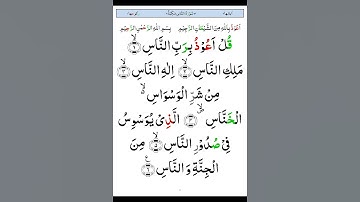 اَعُوْذُ بِاللّٰهِ مِنَ الشَّيْطٰنِ الرَّجِيْمِ بِسْمِ اللّٰهِ الرَّحْمٰنِ الرَّحِيْمِ
قُلْ اَعُوْذُ بِرَبِّ النَّاسِ ۙ﴿۱﴾
مَلِكِ النَّاسِ ۙ﴿۲﴾ اِلٰهِ النَّاسِ ۙ﴿۳﴾
مِنْ شَرِّ الْوَسْوَاسِ ۙ۬
الْخَنَّاسِ ۪ۙ﴿۴﴾ الَّذِیْ يُوَسْوِسُ
فِیْ صُدُوْرِ النَّاسِ ۙ﴿۵﴾ مِنَ
الْجِنَّةِ وَ النَّاسِ ﴿۶﴾